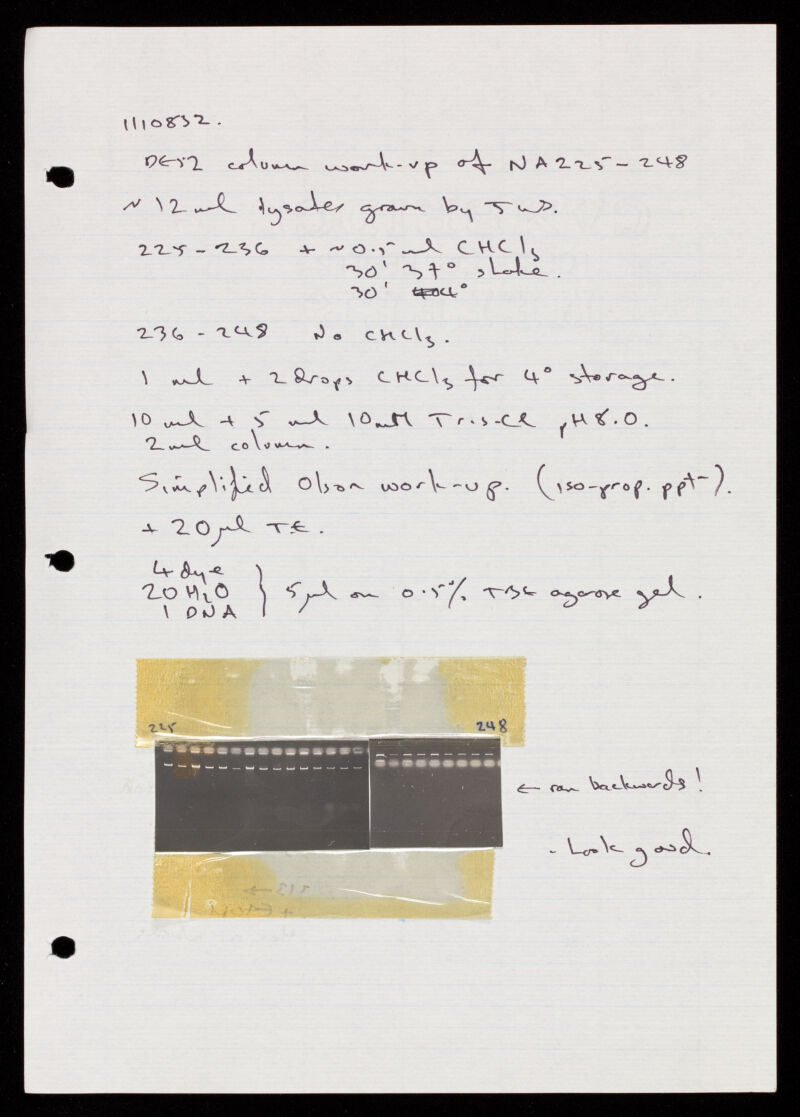 1110832.
DE52 column work-up of NA225-248
~ 12 ml lysates grown by JWS.
225-236 + ~0.5 ml CHCl3
30' 37° shake.
30' 4°
236-248 No CHCl3.
1 ml + 2 drops CHCl3 for 4° storage.
10 ml + 5 ml 10mM Tris-Cl pH 8.0.
2 ml column.
Simplified Olson work-up. (iso-prop. ppt-).
+ 20 µl TE.
4 dye
20 H2O
1 DNA
} 5 µl on 0.5% TBE agarose gel.
225 248
← ran backwards!
- Look good.